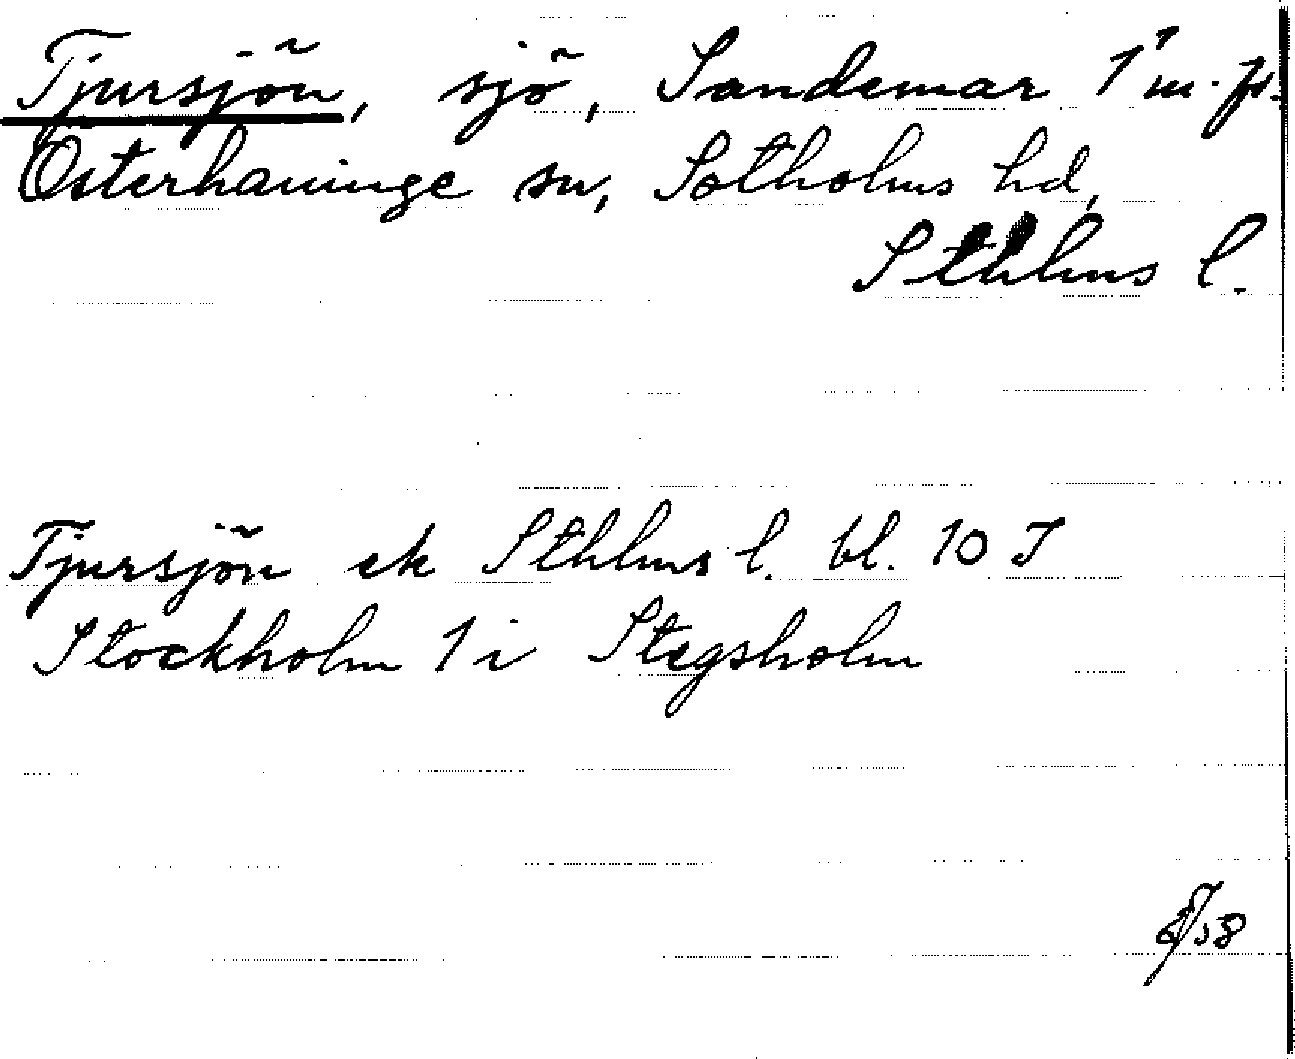 Tjursjön, sjö, Sandemar 1 m. fl.
Österhaninge sn, Sotholms hd,
Sthlms l.
Tjursjön ek Sthlms l. bl. 10 J
Stockholm 1 i Stegsholm